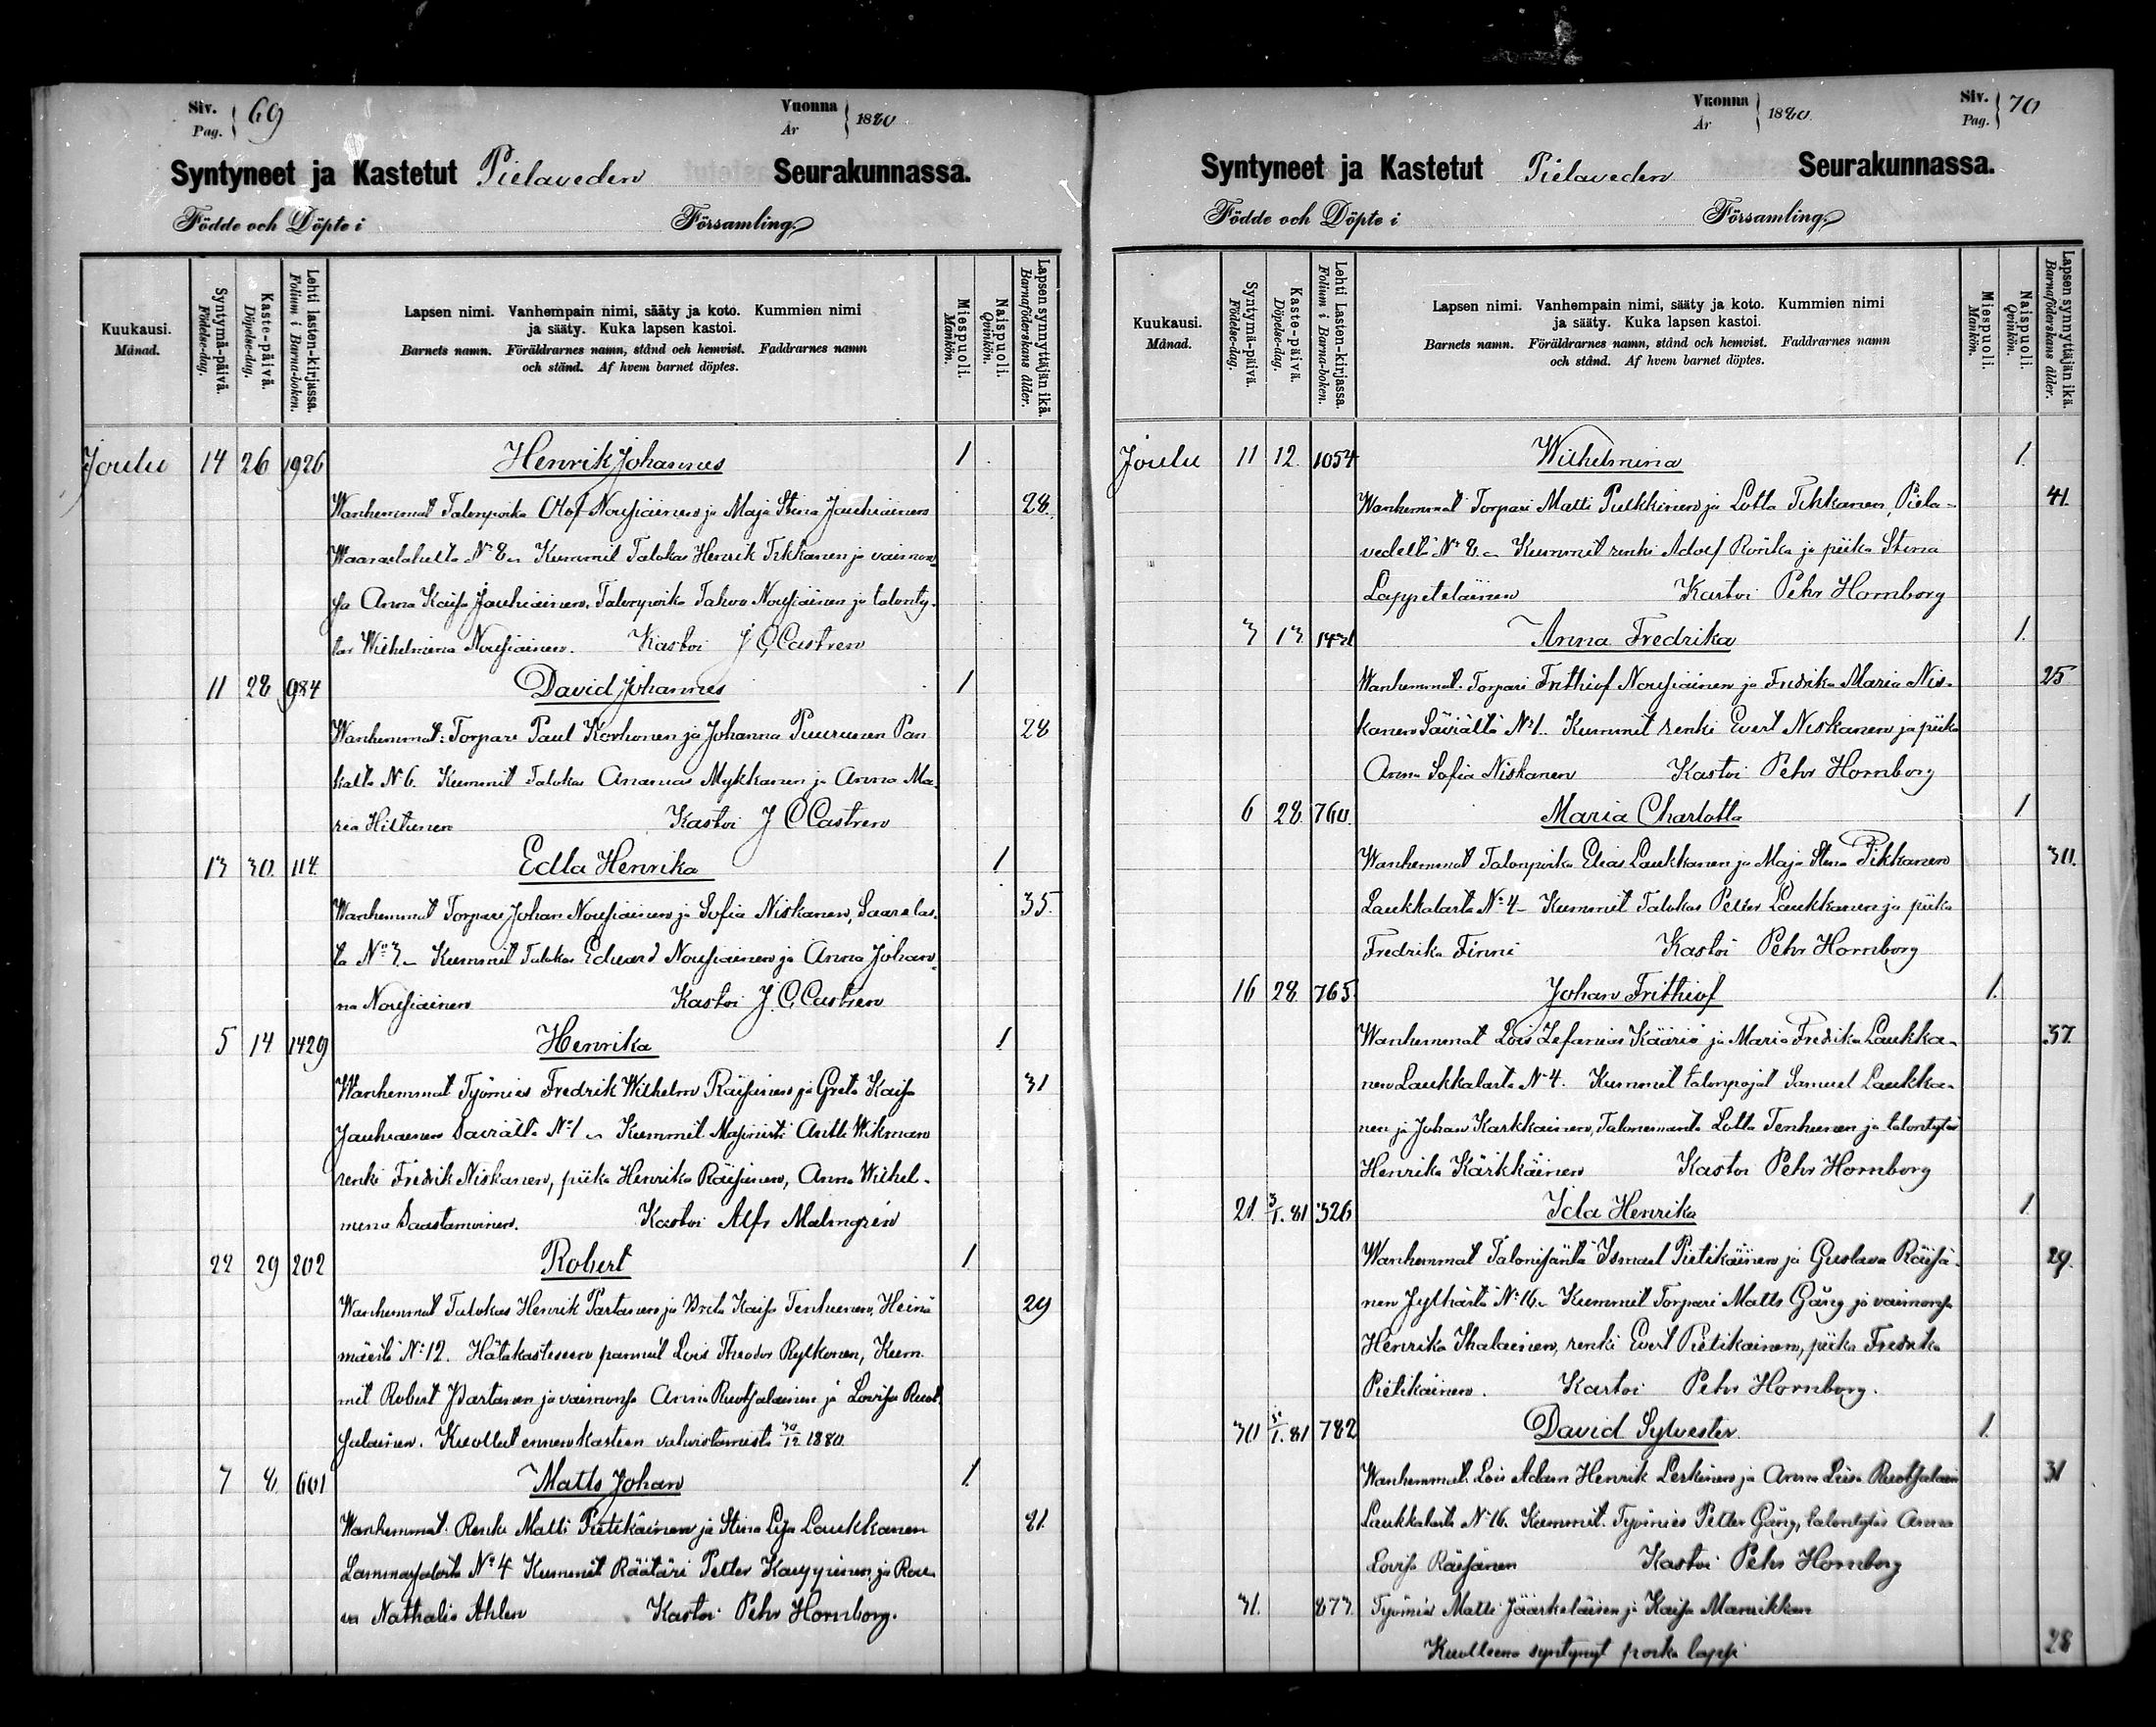 Siv. Pag. 69 Vuonna År 1880
Syntyneet ja Kastetut Pielaveden Seurakunnassa.
Födde och Döpte i Församling.
Kuukausi. Månad. Syntymä-päivä. Födelse-dag. Kaste-päivä. Döpelse-dag. Lehti lasten-kirjassa. Folium i Barna-boken. Lapsen nimi. Vanhempain nimi, sääty ja koto. Kummien nimi ja sääty. Kuka lapsen kastoi. Barnets namn. Föräldrarnes namn, stånd och hemvist. Faddrarnes namn och stånd. Af hvem barnet döptes. Miespuoli. Mankön. Naispuoli. Qvinkön. Lapsen synnyttäjän ikä. Barnaföderskans ålder.
Joulu 14 26 1926 Henrik Johannes 1
Wanhemmat Talonpoika Olof Nousiainen ja Maja Stina Jauhiainen 28.
No 8 Kummit Talokas Henrik Tikkanen ja vaimon-
sa Anna Kaisa Jauhiainen, Talonpoika Tahvo Nousiainen ja talonty-
tär Wilhelmina Nousiainen. Kastoi J C Castren
11 28 984 David Johannes 1
Wanhemmat: Torpari Paul Korhonen ja Johanna Puurunen Pan
kalta No 6. Kummit Talokas Ananias Mykkänen ja Anna Ma-
ria Hiltunen Kastoi J C Castren
13 30 114. Edla Henrika 1
Wanhemmat Torpari Johan Nousiainen ja Sofia Niskanen, Saarelas-
ta No 3. Kummit Talokas Eduard Nousiainen ja Anna Johan-
na Nousiainen Kastoi J. C. Castren
5 14 1429 Henrika 1
Wanhemmat Työmies Fredrik Wilhelm Räisänen ja Greta Kaisa 31
Jauhiainen Säviältä No 1 Kummit Antti Wikman
renki Fredrik Niskanen, piika Henrika Räisänen, Anna Wilhel-
mina Saastamoinen. Kastoi Alfr Malmgrén
22 29 202 Robert 1
Wanhemmat Talokas Henrik Partanen ja Brita Kaisa Tenhunen, Heinä 29
mäeltä No 12. Hätäkasteseen pannut Lois Theodor Rytkönen, Kum
mit Robert Partanen ja vaimonsa Anna Ruotsalainen ja Lovisa Ruot-
salainen. Kuollut ennen kasteen vahvistamista 30/12 1880.
7 8 601 Matts Johan 1.
Wanhemmat. Renki Matti Pietikäinen ja Stina Lisa Laukkanen 21.
Lammassalosta No 4 Kummit Räätäri Petter Kauppinen ja Rou-
va Nathalia Ahlen Kastoi Pehr Hornborg.
Vuonna År 1880. Siv. Pag. 70
Syntyneet ja Kastetut Pielaveden Seurakunnassa.
Födde och Döpte i Församling.
Kuukausi. Månad. Syntymä-päivä. Födelse-dag. Kaste-päivä. Döpelse-dag. Lehti Lasten-kirjassa. Folium i Barna-boken. Lapsen nimi. Vanhempain nimi, sääty ja koto. Kummien nimi ja sääty. Kuka lapsen kastoi. Barnets namn. Föräldrarnes namn, stånd och hemvist. Faddrarnes namn och stånd. Af hvem barnet döptes. Miespuoli. Mankön. Naispuoli. Qvinkön. Lapsen synnyttäjän ikä. Barnaföderskans ålder.
Joulu 11 12. 1054 Wilhelmina 1.
Wanhemmat Torpari Matti Pulkkinen ja Lotta Tikkanen, Piela- 41.
vedeltä No 8. Kummit renki Adolf Rönkä ja piika Stina
Lappeteläinen Kastoi Pehr Hornborg
3 13 1431 Anna Fredrika 1.
Wanhemmat. Torpari Frithiof Nousiainen ja Fredrika Maria Nis- 25
kanen Säviältä No 1. Kummit renki Evert Niskanen ja piika
Anna Sofia Niskanen Kastoi Pehr Hornborg
6 28. 760. Maria Charlotta 1
Wanhemmat Talonpoika Elias Laukkanen ja Maja Stina Tikkanen 30.
Laukkalasta No 4 Kummit Talokas Petter Laukkanen ja piika
Fredrika Finni Kastoi Pehr Hornborg
16 28 765. Johan Frithiof 1.
Wanhemmat Lois Zefanias Kääriä ja Maria Fredrika Laukka- 37.
nen Laukkalasta No 4. Kummit talonpojat Samuel Laukka-
nen ja Johan Kärkkäinen, Talonemäntä Lotta Tenhunen ja talontytär
Henrika Kärkkäinen Kastoi Pehr Hornborg
21. 3/1. 81 326 Ida Henrika 1.
Wanhemmat Talonisäntä Ismael Pietikäinen ja Gustava Räisä- 29.
nen Jylhästä No 16. Kummit Torpari Matts Gång ja vaimonsa
Henrika Ihalainen, renki Evert Pietikäinen, piika Fredrika
Pietikäinen. Kastoi Pehr Hornborg.
30 /1. 81 782 David Sylvester. 1.
Wanhemmat. Lois Adam Henrik Leskinen ja Anna Liisa Ruotsalain 31
Laukkalasta No 16. Kummit. Työmies Petter Gång, talontytär Anna
Lovisa Räisänen Kastoi Pehr Hornborg
31. 873. Työmies Matti Jääskeläinen ja Kaisa Mannikkan
Kuolleena syntynyt poika lapsi 28